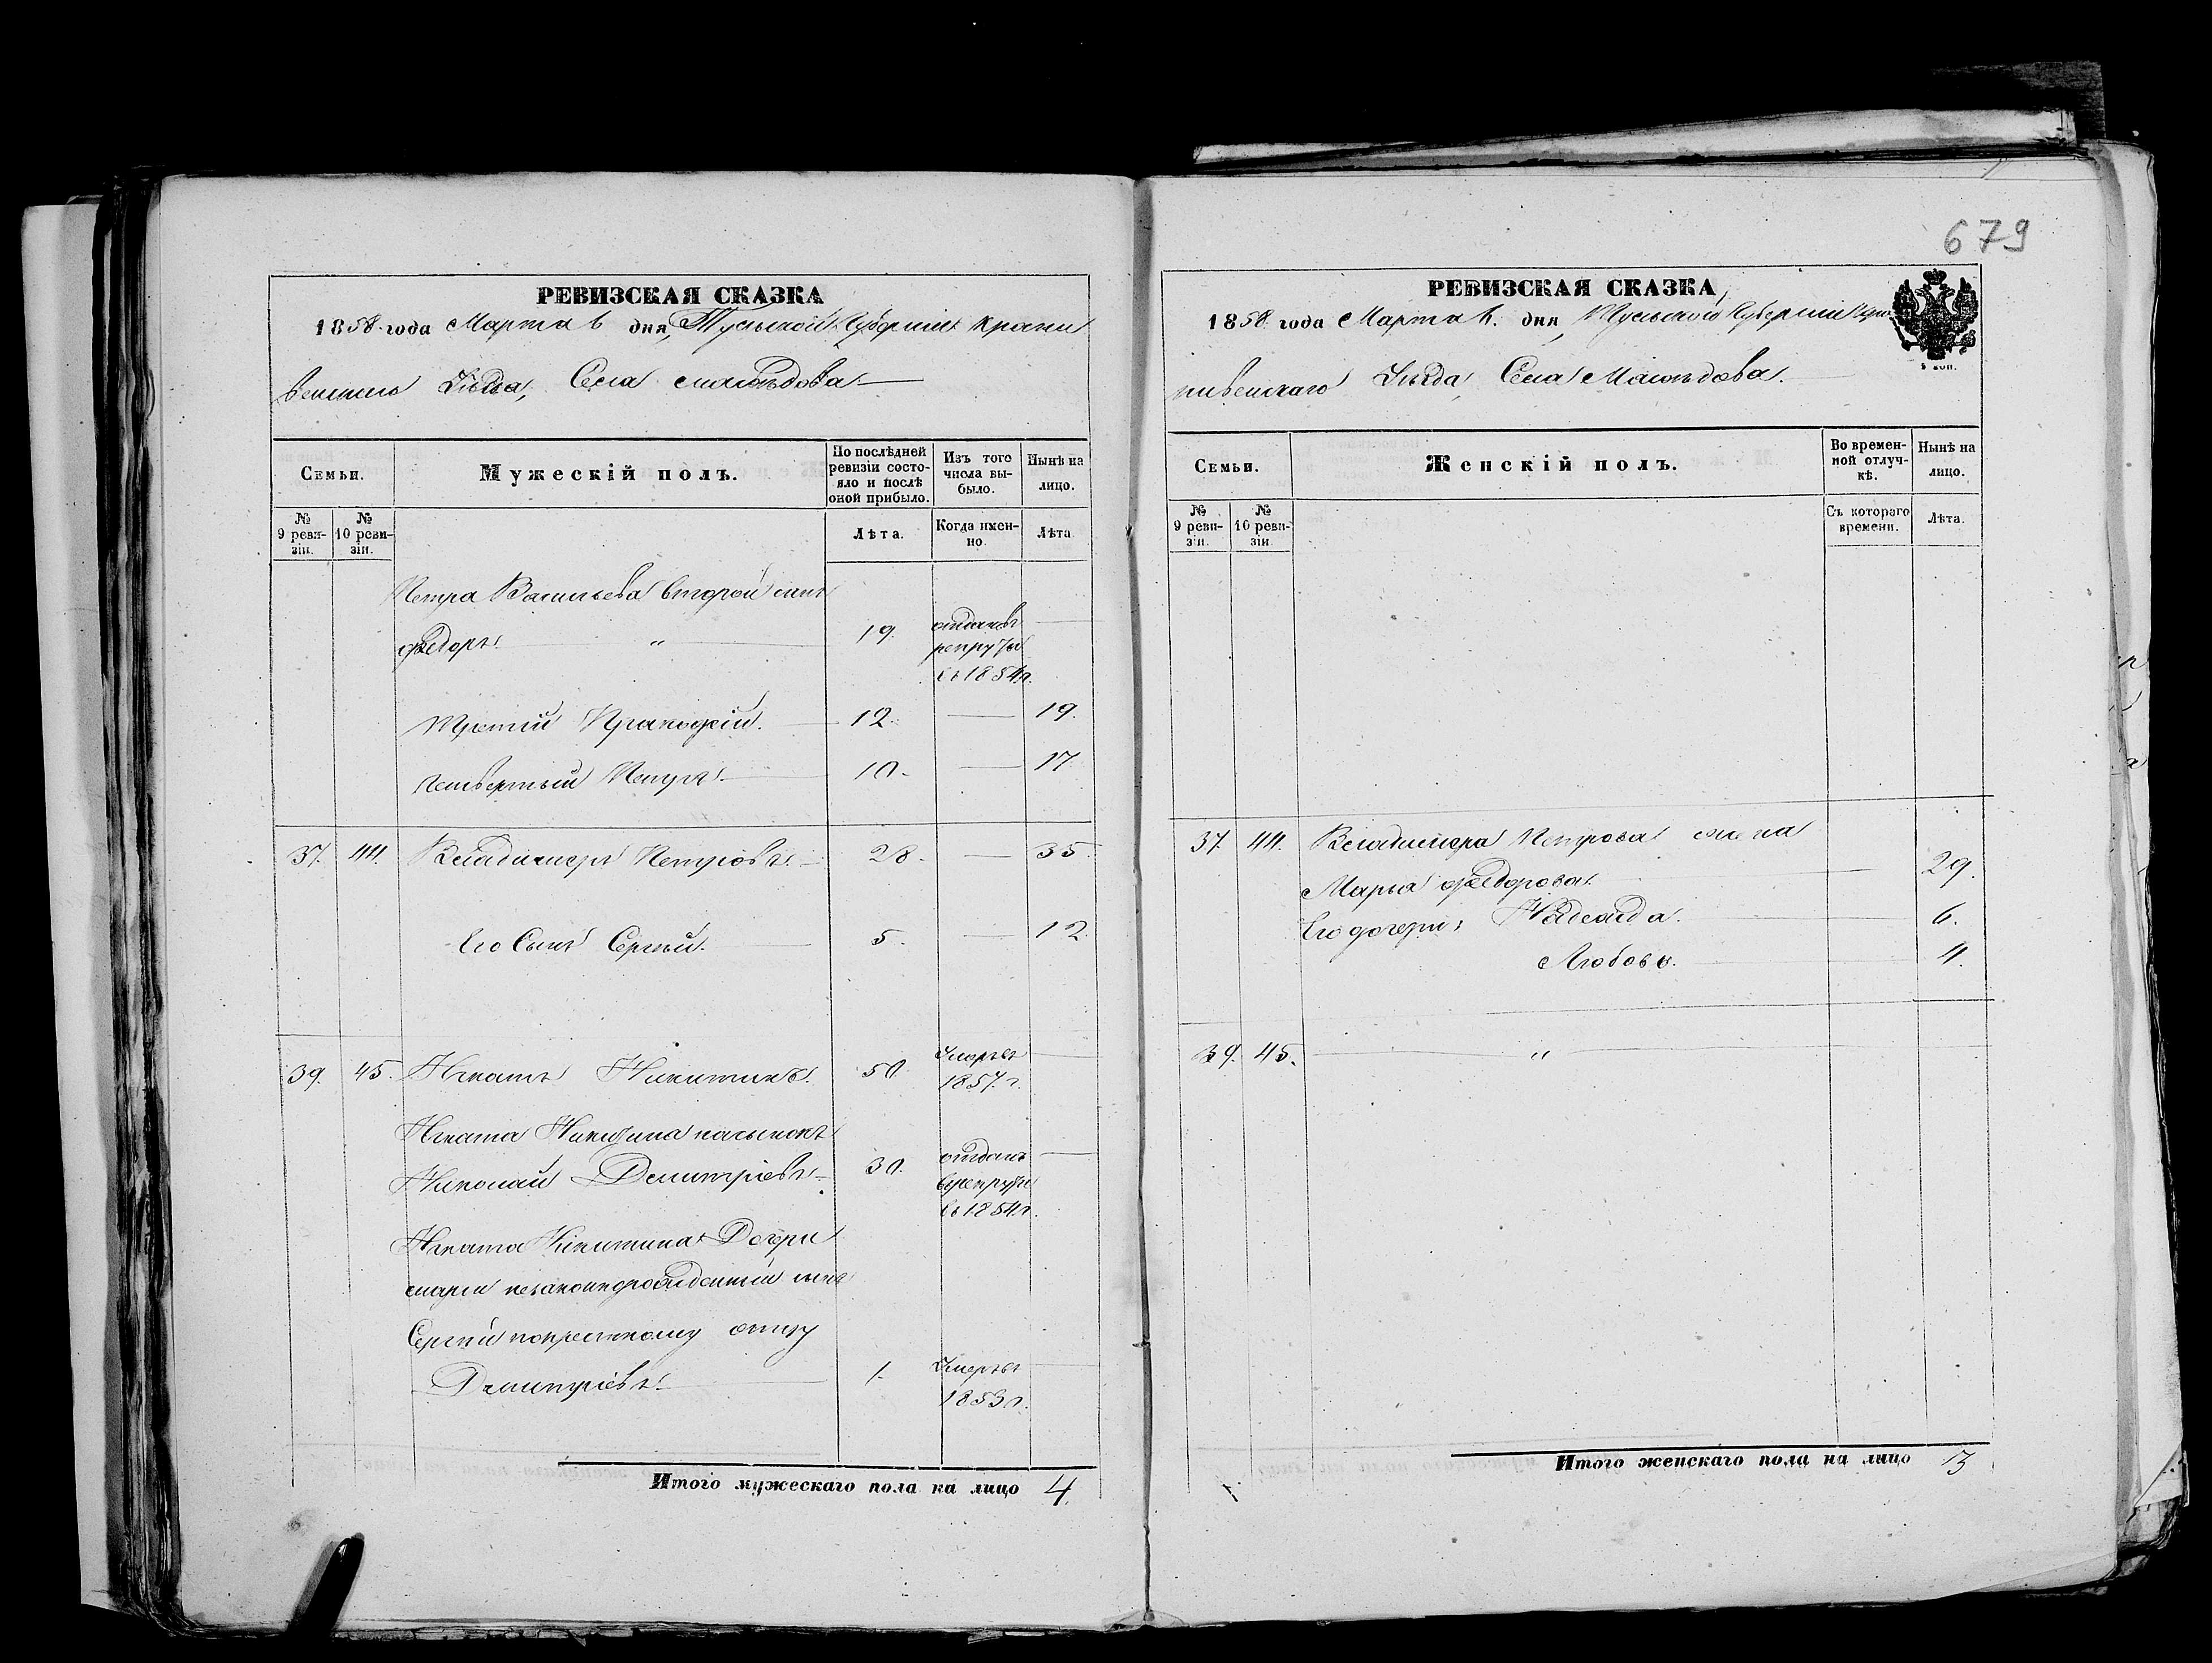 679
РЕВИЗСКАЯ СКАЗКА
1858 года Марта 6 дня, Тульской Губерніи Крапи
венскаго Уѣзда, Села Маслѣдова
Семьи.
Мужескій полъ.
По послѣдней ревизіи состояло и послѣ оной прибыло.
Изъ того числа выбыло.
Нынѣ на лицо.
№ 9 ревизіи.
№ 10 ревизіи.
Лѣта.
Когда именно.
Лѣта
Петра Васильева второй сынъ
Федоръ " 19. отданъ въ рекруты въ 1854 г.
третій Пракофій. 12. 19.
четвертый Петръ. 10. 17
37. 44. Владимеръ Петровъ 28. 35.
Его Сынъ Сергѣй. 5. 12.
39. 45. Игнатъ Никитинъ. 50. Умеръ въ 1857 г.
Игната Никитина пасынокъ
Николай Дмитріевъ 30. отданъ въ рекруты въ 1854 г.
Игната Никитина Дочери
Марьи незаконнорожденный сынъ
Сергѣй по крестному отцу
Дмитріевъ. 1. Умеръ въ 1853 г.
Итого мужескаго пола на лицо 4.
РЕВИЗСКАЯ СКАЗКА
1858 года Марта 6. дня, Тульской Губерніи Кра
пивенскаго Уѣзда, Села Маслѣдова.
Семьи.
Женскій полъ.
Во временной отлучкѣ.
Нынѣ на лицо.
№ 9 ревизіи.
№ 10 ревизіи
Съ котораго времени.
Лѣта.
37. 44. Владимера Петрова жена
Марья Федорова. 29.
Его дочери: Надежда. 6.
Любовь. 4.
39. 45. "
Итого женскаго пола на лицо 3